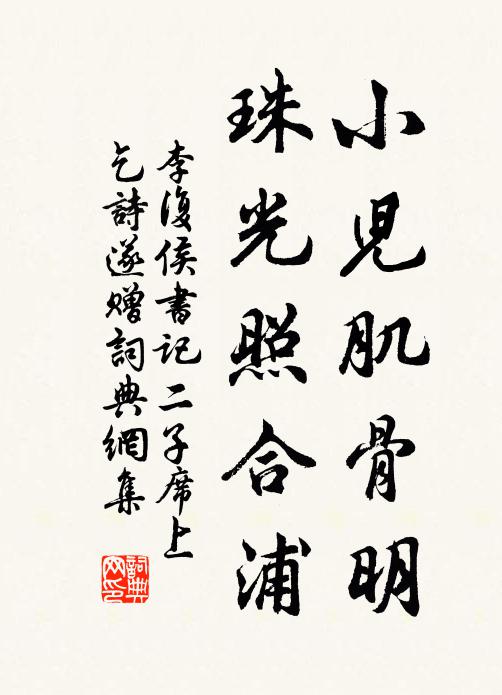 小児肌骨明
珠光照合浦
李復侯書記二子席上
乞詩遂贈詞典網集
詞典
网印